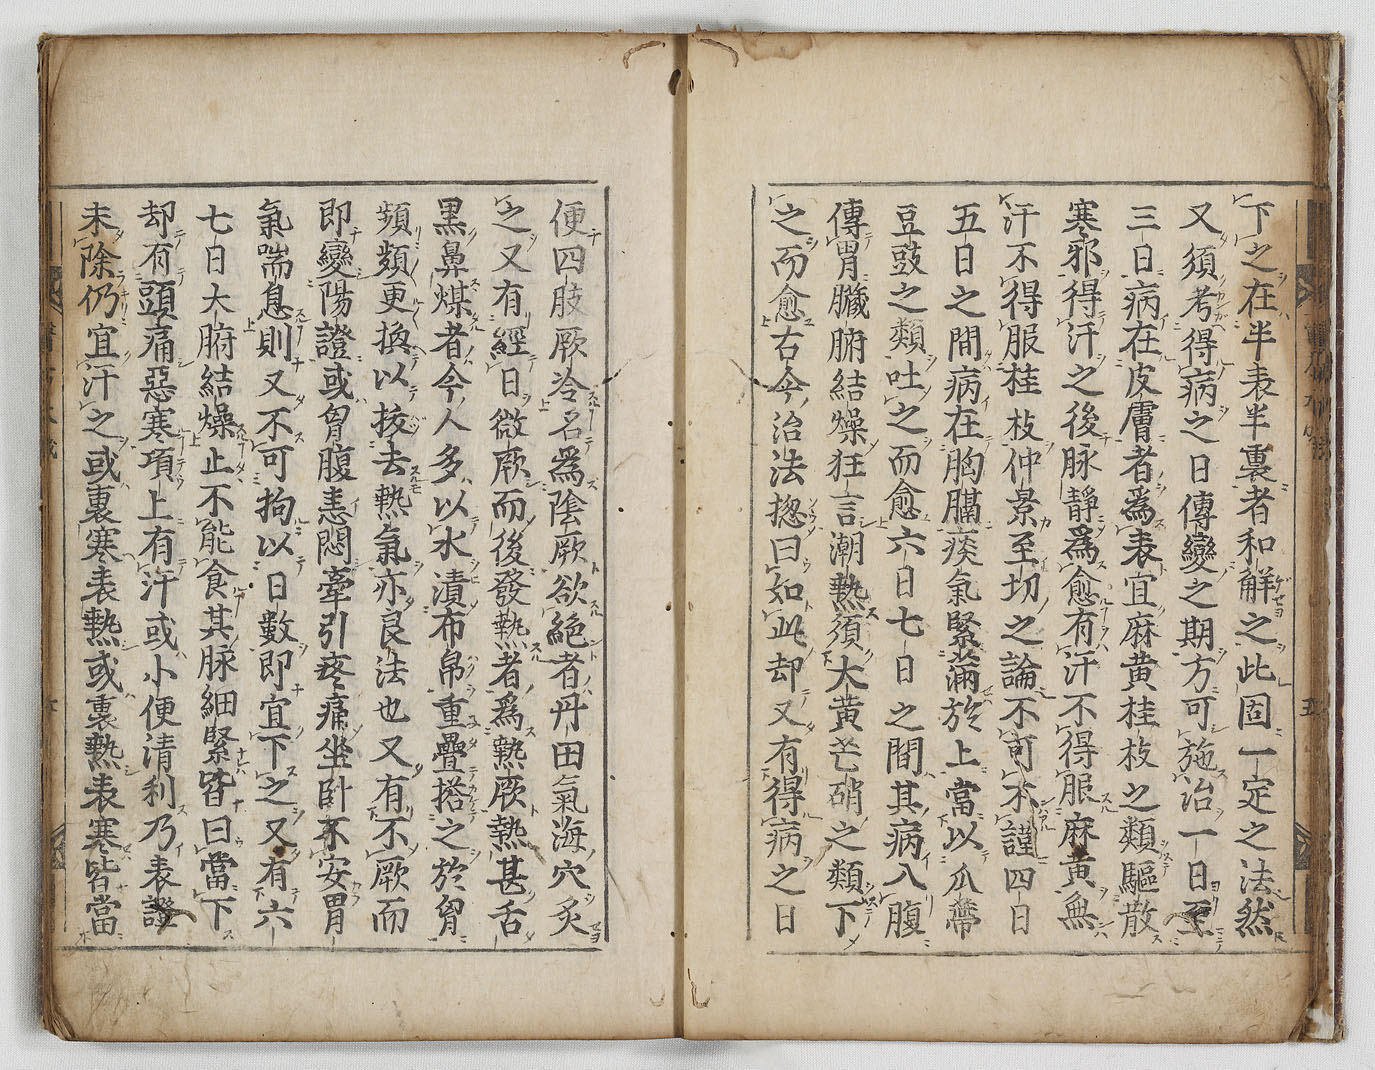 下之在半表半裏者和觧之此固一定之法然
又須考得病之日傳變之期方可施治一日至
三日病在皮膚者爲表宜麻黄桂枝之類驅散
寒邪得汗之後脉靜爲愈有汗不得服麻黄無
汗不得服桂枝仲景至切之論不可不謹四日
五日之間病在胸膈痰氣緊滿於上當以瓜蔕
豆豉之類吐之而愈六日七日之間其病入腹
傳胃臓腑結燥狂言潮熱須大黄芒硝之類下
之而愈古今治法揔曰如此却又有得病之日
便四肢厥冷名爲陰厥欲絶者丹田氣海穴炙
之又有經日微厥而後發熱者爲熱厥熱甚舌
黒鼻煤者今人多以水漬布帛重疊搭之於胷
頻頻更換以拔去熱氣亦良法也又有不厥而
即變陽證或胷腹恚悶牽引疼痛坐卧不安胃
氣喘息則又不可拘以日數即宜下之又有六
七日大腑結燥止不能食其脉細緊皆曰當下
却有頭痛惡寒項上有汗或小便清利乃表證
未除仍宜汗之或裏寒表熱或裏熱表寒皆當